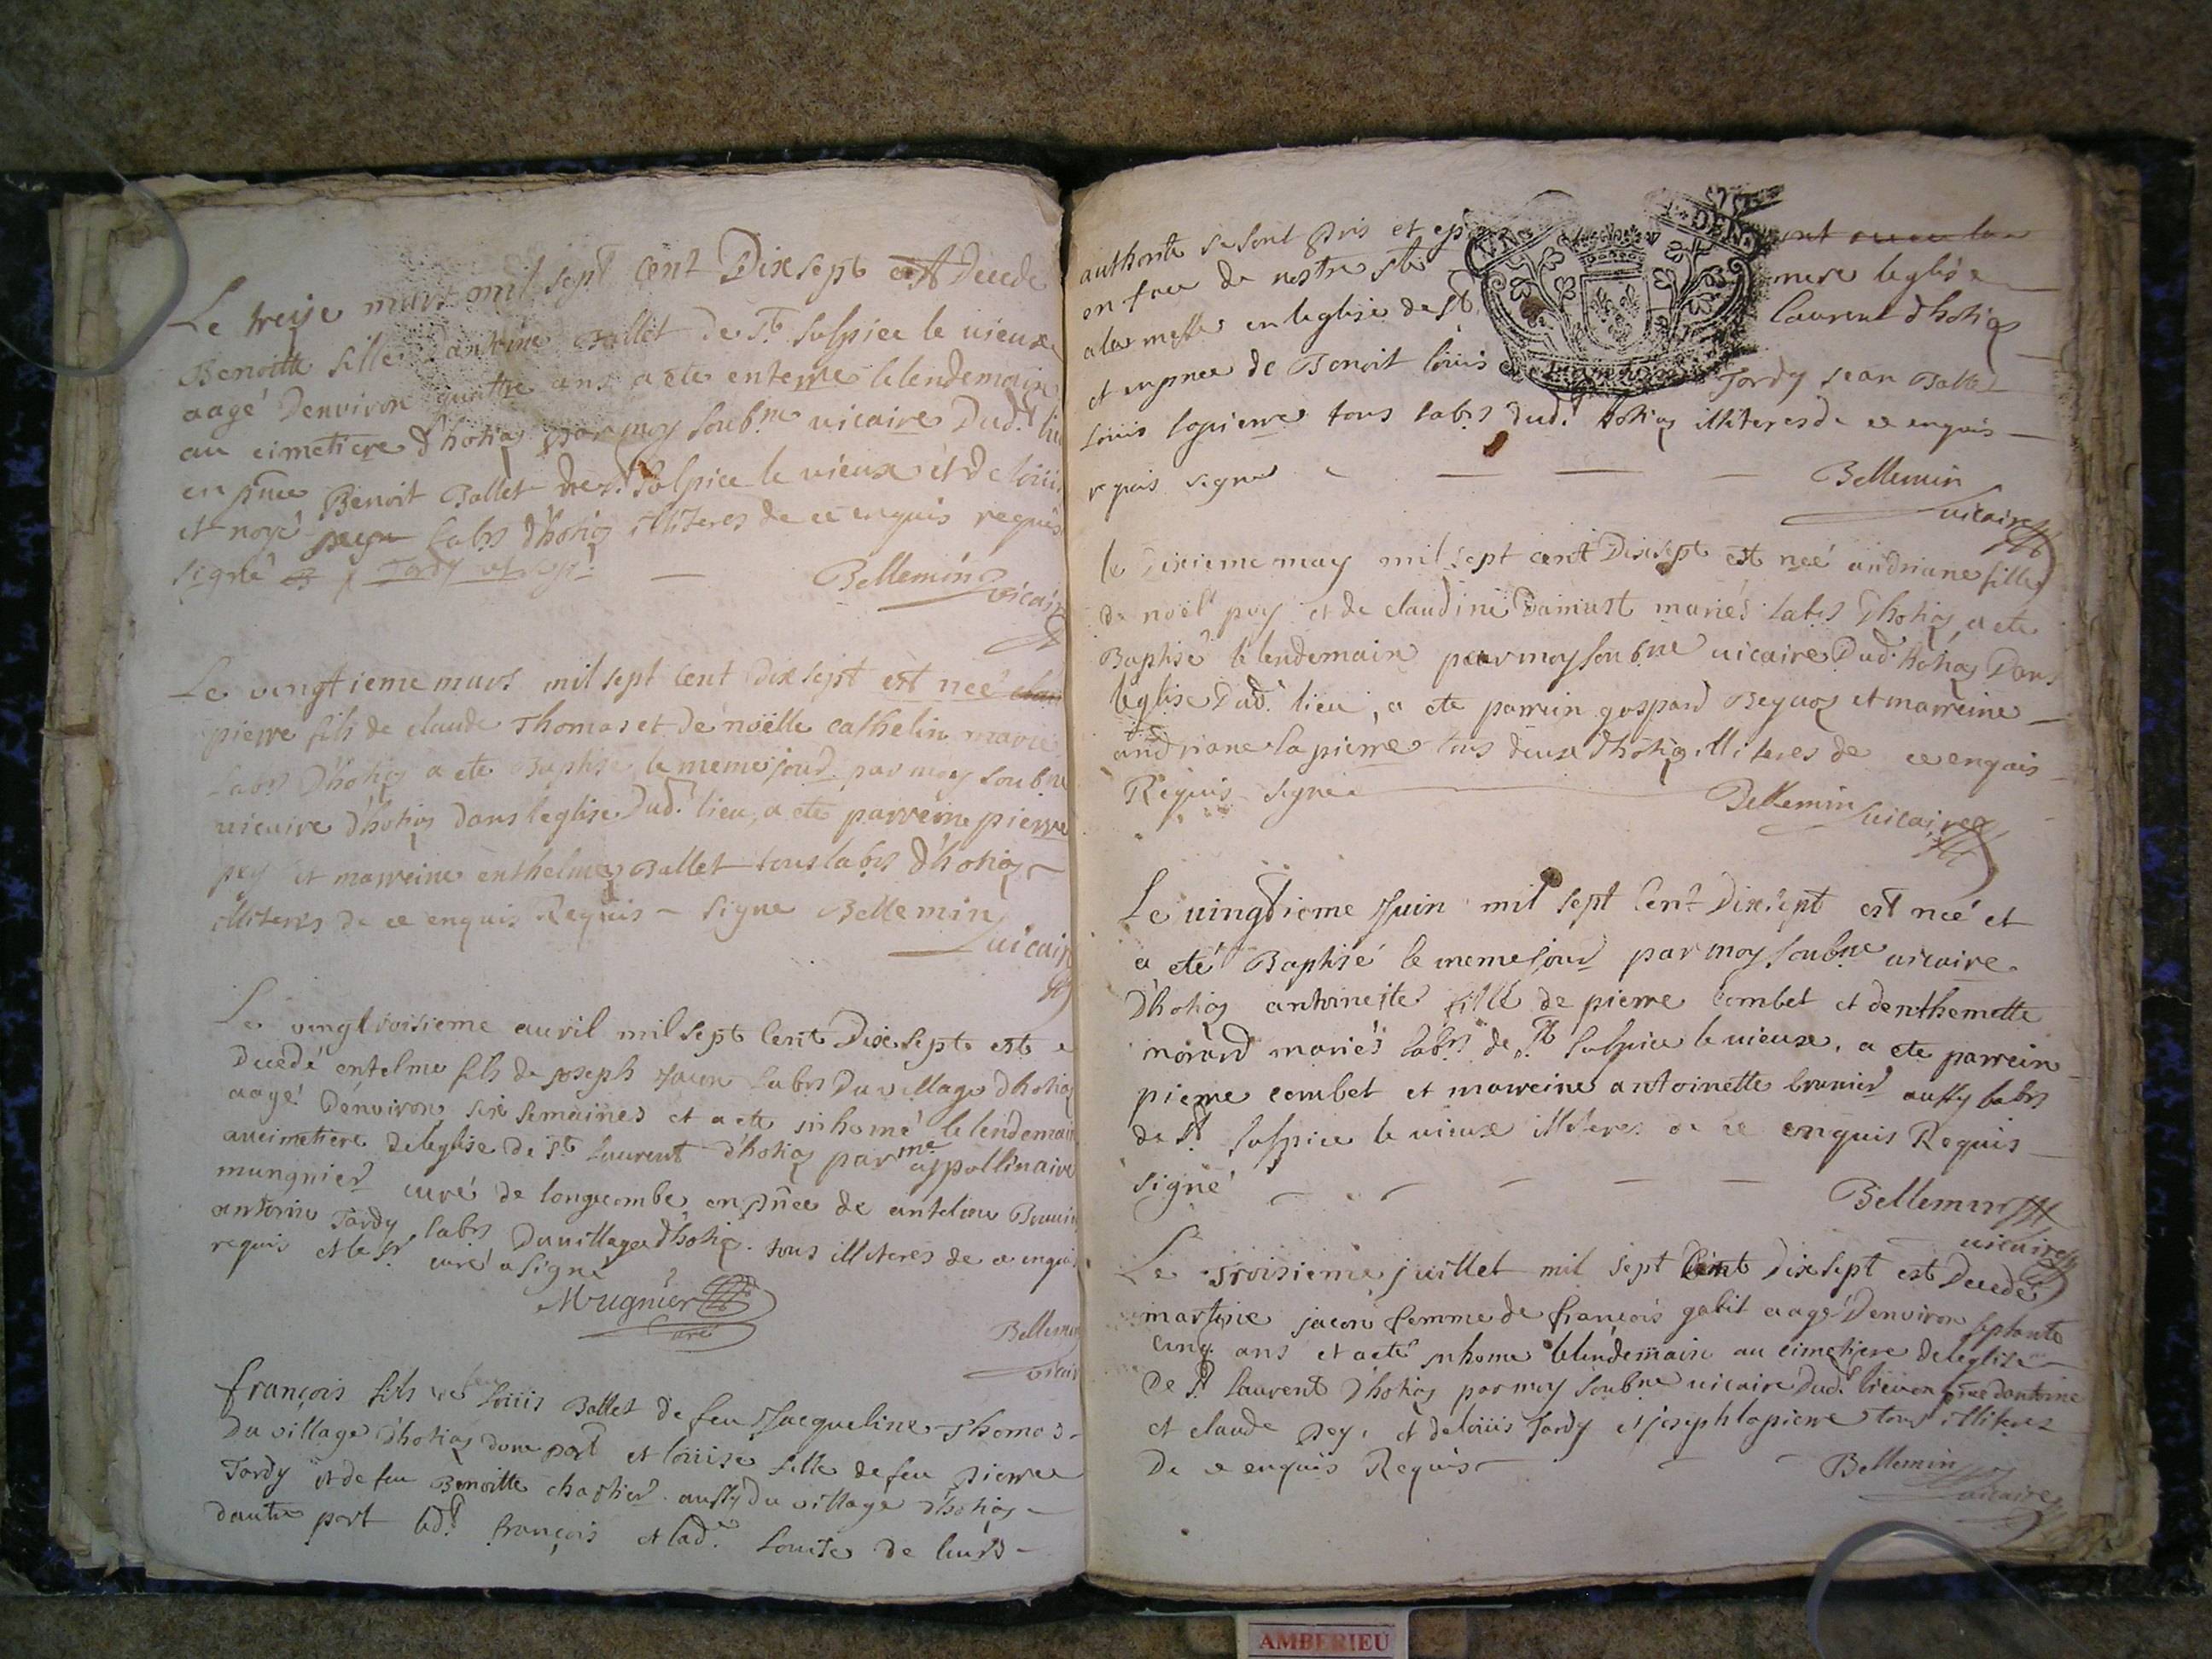 Le treise mars mil sept cent Dixsept est Decede
Benoitte fille dantoine Ballet de St. Sulpice le vieux
aagé Denviron quattre ans a ete enterre le lendemain
au cimetiere d'hotiag par moy soubne vicaire Dud. lieu
en pnce Benoit Ballet de St Sulpice le vieux et de louis
et noye labrs d'hotiag illiteres de ce enquis requis
signé
Bellemin
vicaire
Le vingtieme mars mil sept cent Dix sept est neé
pierre fils de claude Thomas et de noëlle cathelin marié
labrs D'hotiag a ete Baptisé le meme jour par moy soubne
vicaire d'hotiag dans leglise Dud. lieu, a ete parreine pierre
pey et marreine enthelme Ballet tous labrs d'hotiag
illiteres de ce enquis Requis – signe Bellemin
vicaire
Le vingtroisieme auril mil sept Cent Dixsept est
Decedé entelme fils de joseph Jacon labrs Du village dhotiag
aagé Denviron six semaines et a ete inhomé le lendemain
au cimetiere de leglise de St Laurent d'hotiag par me appollinaire
mungnier curé de longecombe, en pnce de antelme
antoine Tardy labrs Du village d'hotiag. tous illiteres de ce enquis
requis et le Sr. curé a signé
Mugnier
curé
Bellemin
vicaire
françois fils de feu louis Ballet de feu Jacqueline Thomas
Du village D'hotiag dune part et louise fille de feu pierre
Tardy et de feu Benoitte chastier aussy du village d'hotiag
dautre part led. françois et lad. Louise de leurs
authorité se sont pris et
en face de nostre ste mere leglise
a la messe en leglise de St. Laurent d'hotiag
et en pnce de Benoit louis Tardy jean Ballet
louis lapierre tous labrs dud. hotiag illiteres de ce enquis
requis signe
Bellemin
vicaire
le Dixieme may mil sept cent Dixsept est neé andriane fille
de noël pey et de claudine mariés labrs D'hotiag a ete
Baptisé le lendemain par moy soubne vicaire Dud. hotiag Dans
leglise Dud. lieu, a ete parrein gaspard Beguoz et marreine
andriane lapierre tous deux d'hotiag illiteres de ce enquis
Requis signe
Bellemin vicaire
Le vingtieme Juin mil sept Cent Dixsept est neé et
a eté Baptisé le meme jour par moy soubne vicaire
D'hotiag antoinette fille de pierre combet et denthemette
morard mariés labrs de St. Sulpice le vieux, a ete parrein
pierre combet et marreine antoinette brunier aussy labrs
de St Sulpice le vieux illiteres de ce enquis Requis
signé
Bellemin
vicaire
Le troisieme juillet mil sept Cent Dixsept est Decedé
martine jacon femme de françois gabit aagé Denviron septante
Cinq ans et a eté inhome le lendemain au cimetiere de leglise
de St Laurent D'hotiag par moy soubne vicaire Dud. lieu en pnce dantoine
et claude pey, et de louis Tardy et joseph lapierre tous illiteres
De ce enquis Requis
Bellemin
vicaire
AMBERIEU